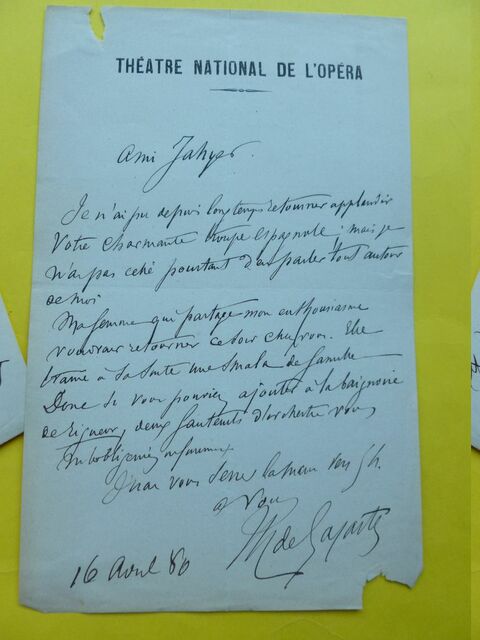 THÉATRE NATIONAL DE L'OPÉRA
Ami Jahyer.
Je n'ai pu depuis longtemps retourner applaudir
Votre charmante troupe espagnole ; mais je
n'ai pas cessé pourtant d'en parler tout autour
de moi
Ma femme qui partage mon enthousiasme
voudrait retourner ce soir chez vous. Elle
traine à sa suite une smala de famille
Donc si vous pouviez ajouter à la baignoire
de rigueur, deux fauteuils d'orchestre vous
m'obligeriez
vous serre la main
a vous
Th de Lajarte
16 Avril 80